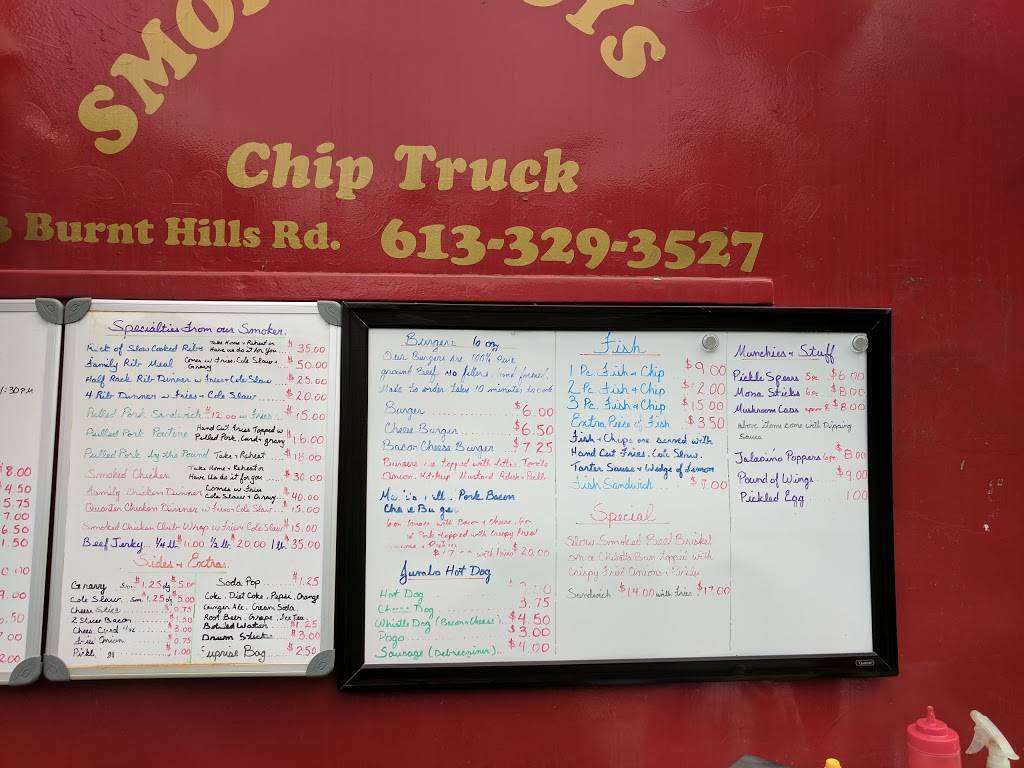 Chip Truck
Burnt Hills Rd. 613-329-3527
:30 PM
8.00
4.50
5.75
7.00
6.50
1.50
9.00
7.00
2.00
Specialties From our Smoker.
Rack of Slow Cooked Ribs Take Home + Reheat or Have us do it for you $35.00
Family Rib Meal Comes w Fries, Cole Slaw + Gravy $50.00
Half Rack Rib Dinner w Fries + Cole Slaw $25.00
4 Rib Dinner w Fries + Cole Slaw $20.00
Pulled Pork Sandwich $12.00 w Fries $15.00
Pulled Pork Poutine Hand Cut Fries Topped w Pulled Pork, Curd + gravy $16.00
Pulled Pork by the Pound Take + Reheat $18.00
Smoked Chicken Take Home + Reheat or Have us do it for you $30.00
Family Chicken Dinner Comes w Fries Cole Slaw + Gravy $40.00
Quarter Chicken Dinner w Fries + Cole Slaw $15.00
Smoked Chicken Club Wrap w Fries + Cole Slaw $15.00
Beef Jerky 1/4 lb $11.00 1/2 lb $20.00 1 lb $35.00
Sides + Extras
Gravy sm $1.25 lg $5.00
Cole Slaw sm $1.25 lg $5.00
Cheese $0.75
2 Slices Bacon $1.50
Cheese Curd $3.00
Onion $0.75
Pickle $1.00
Soda Pop $1.25
Coke, Diet Coke, Pepsi, Orange
Ginger Ale, Cream Soda
Root Beer, Grape, Ice Tea
Bottled Water $1.25
Drum Stick $3.00
Suprise Bag $2.50
Burgers 6 oz
Our Burgers Are 100% Pure
ground Beef no fillers, hand formed
Made to order takes 10 minutes to cook
Burger $6.00
Cheese Burger $6.50
Bacon Cheese Burger $7.25
Burgers are topped with Lettuce, Tomato
Onion, Ketchup Mustard Relish + Pickle
Pork Bacon
Cheese Burger
6 oz Burger with Bacon + Cheese, 6 oz
Pork topped with crispy fried
with fries $20.00
Jumbo Hot Dog
Hot Dog
Cheese Dog 3.75
Whistle Dog (Bacon + Cheese) $4.50
Pogo $3.00
Sausage (Debreciner) $4.00
Fish
1 Pc. Fish + Chip $9.00
2 Pc. Fish + Chip $12.00
3 Pc. Fish + Chip $15.00
Extra Piece of Fish $3.50
Fish + Chips are served with
Hand Cut Fries, Cole Slaw,
Tarter Sauce + Wedge of Lemon
Fish Sandwich $9.00
Special
Slow Smoked Beef Brisket
on a Chibatta Bun topped with
Crispy Fried Onions + Pickles
Sandwich $14.00 with fries $17.00
Munchies + Stuff
Pickle Spears 5pc $6.00
Mozza Sticks 6pc $8.00
Mushroom Caps $8.00
Above Items Come with Dipping
Sauce
Jalapino Poppers 6pc $8.00
Pound of Wings $9.00
Pickled Egg 1.00